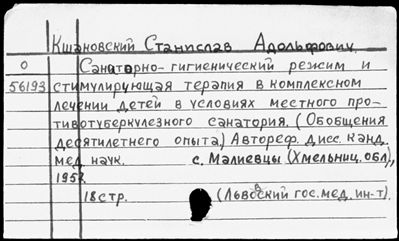 Кшановский Станислав Адольфович.
О Санаторно-гигиенический режим и
56193 стимулирующая терапия в комплексном
лечении детей в условиях местного про-
тивотуберкулезного санатория. (Обобщения
десятилетнего опыта.) Автореф. дисс. канд.
мед. наук. с. Малиевцы (Хмельниц. обл.),
1957
18 стр. (Львовский гос. мед. ин-т).